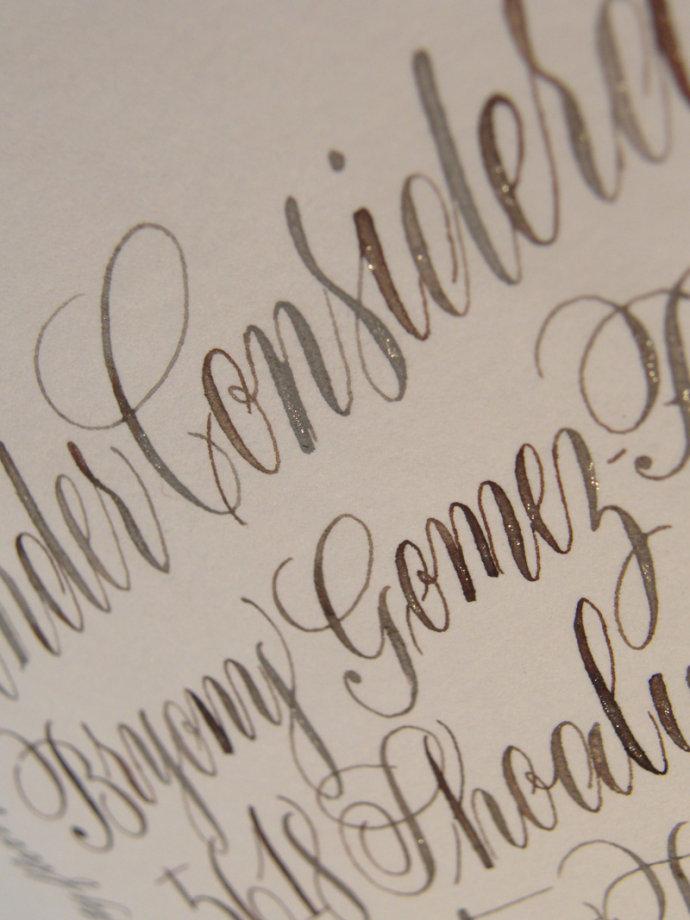 nder Considera
Bryony Gomez-P
5618 Shoali